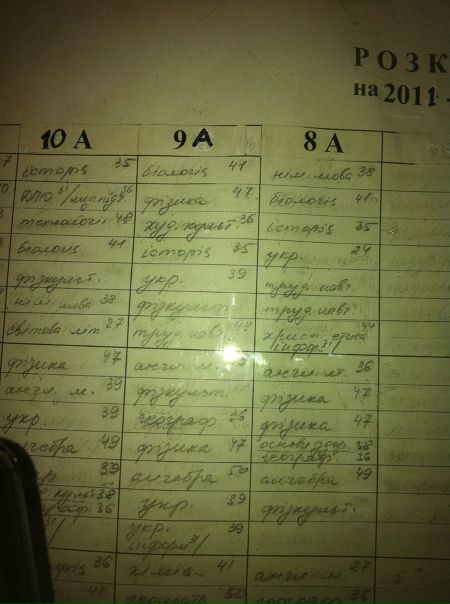 РОЗК
на 2011 -
10 А 9 А 8 А
історія 35 біологія 41 нім. мова 38
ДПЮ 31/ 36 фізика 47 біологія 41
технології 48 худ. культ. 36 історія 35
біологія 41 історія 35 укр. 24
фізкульт. укр. 39 труд. навч.
нім. мова 38 фізкульт. труд. навч.
світова літ. 27 труд. навч. христ. етика 44
інформ. 31/
фізика 47 англ. м. англ. м. 36
англ. м. 39 фізкульт. фізика 47
укр 39 географ. 36 фізика 47
гебра 49 фізика 47 основи здор. 38
географ. 36
39 алгебра 50 алгебра 49
культ 38 укр. 39 фізкульт.
аф 36
31/ укр. 39
інформ 31/
фія 36 хімія 41 англ. м 27
41 50 географ 36